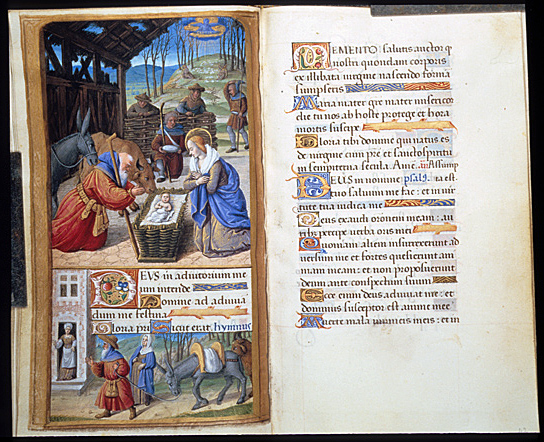 DEUS in adiutorium me
um intende
Domine ad adiuuā
dum me festina
Gloria pri Sicut erat. hymnus
MEMENTO salutis auctor q
nostri quondam corporis
ex illibata virgine nascendo formā
sumpseris
Maria mater gr̄e mater misericor
die tu nos ab hoste protege et hora
mortis suscipe
Gloria tibi domine qui natus es
de virgine cum prē et sancto spiritu
in sempiterna secula. Amē. añ Assump
DEUS in nomine psalͫ. ta est
tuo saluum me fac: et in uir
tute tua iudica me
Deus exaudi orōnem meam: au
ribꝫ percipe uerba oris mei
Quoniam alieni insurrexerunt ad
uersum me et fortes quesierunt ani
mam meam: et non proposuerunt
deum ante conspectum suum
Ecce enim deus adiuuat me: et
dominus susceptor est anime mee
Auerte mala inimicis meis: et in